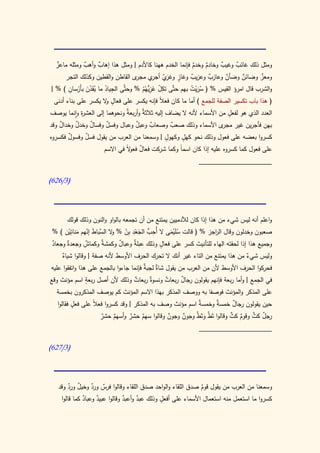 ومثل ذلك غائبٌ وغيبٌ وخادمٌ وخدمٌ فإنما الخدم ههنا كالأدم { ومثل هذا إهابٌ وأهبٌ ومثله ماعزٌ
ومعزٌ وضائنٌ وضأنٌ وعازبٌ وعزيبٌ وغازٍ وغزيٌ أجري مجرى القاطن والقطين وكذلك التجر
والشرب قال امرؤ القيس % ( سَرَيْتُ بهم حتَّى تكلَّ غَزِيُّهُمْ % وحتَّى الجيادُ ما يُقدْن بأرْسانِ ) % {
( هذا باب تكسير الصفة للجمع ) أما ما كان فعلاً فإنه يكسر على فعالٍ ولا يكسر على بناء أدنى
العدد الذي هو لفعلٍ من الأسماء لأنه لا يضاف إليه ثلاثةٌ وأربعةٌ ونحوهما إلى العشرة وإنما يوصف
بهن فأجرين غير مجرى الأسماء وذلك صعبٌ وصعابٌ وعبلٌ وعبالٌ وفسلٌ وفسالٌ وخدلٌ وخدالٌ وقد
كسروا بعضه على فعولٍ وذلك نحو كهلٍ وكهولٍ { وسمعنا من العرب من يقول فسلٌ وفسولٌ فكسروه
على فعولٍ كما كسروه عليه إذا كان اسماً وكما شركت فعالٌ فعولاً في الاسم
(626/3)
واعلم أنه ليس شيء من هذا إذا كان للآدميين يمتنع من أن تجمعه بالواو والنون وذلك قولك
صعبون وخدلون وقال الراجز % ( قالت سُلَيْمَى لا أُحِبُّ الجَعْدِ ينْ % ولا السِّباطَ إنَّهم مَناتِيْنَ ) %
وجميع هذا إذا لحقته الهاء للتأنيث كسر على فعالٍ وذلك عبلةٌ وعبالٌ وكمشةٌ وكماشٌ وجعدةٌ وجعادٌ
وليس شيءٌ من هذا يمتنع من التاء غير أنك لا تحرك الحرف الأوسط لأنه صفة { وقالوا شياهٌ
فحركوا الحرف الأوسط لأن من العرب من يقول شاةٌ لجبةٌ فإنما جاءوا بالجمع على هذا واتفقوا عليه
في الجمع { وأما ربعة فإنهم يقولون رجالٌ ربعاتٌ ونسوةٌ ربعاتٌ وذلك لأن أصل ربعةٍ اسم مؤنث وقع
على المذكر والمؤنث فوصفا به ووصف المذكر بهذا الاسم المؤنث كم يوصف المذكرون بخمسة
حين يقولون رجالٌ خمسةٌ وخمسةٌ اسم مؤنث وصف به المذكر { وقد كسروا فعلاً على فعلٍ فقالوا
رجلٌ كثٌ وقومٌ كثٌ وقالوا ثطٌ وثطٌ وجونٌ وجونٌ وقالوا سهمٌ حشرٌ وأسهمٌ حشرٌ
(627/3)
وسمعنا من العرب من يقول قومٌ صدق اللقاء والواحد صدق اللقاء وقالوا فرسٌ وردٌ وخيلٌ وردٌ وقد
كسروا ما استعمل منه استعمال الأسماء على أفعل وذلك عبدٌ وأعبدٌ وقالوا عبيدٌ وعبادٌ كما قالوا